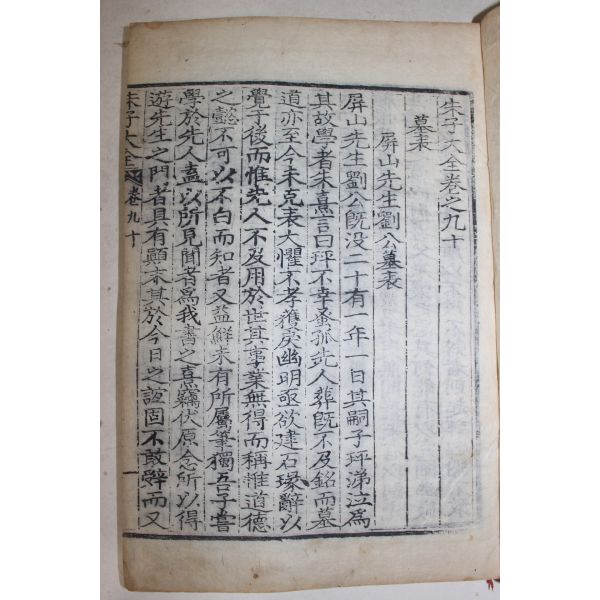 朱子大全卷之九十
墓表
屏山先生劉公墓表
屏山先生劉公旣没二十有一年一日其嗣子坪涕泣爲
其故學者朱熹言曰坪不幸蚤孤先人葬旣不及銘而墓
道亦至今未克表大懼不孝獲戾幽明亟欲建石琢辭以
覺于後而惟先人不及用於世其事業無得而稱惟道德
之懿不可以不白而知者又益鮮未有所屬筆獨吾子嘗
學於先人盍以所見聞者爲我書之熹竊伏原念所以得
遊先生之門者具有顚末其於今日之誼固不敢辭而又
朱子大全 卷九十 一